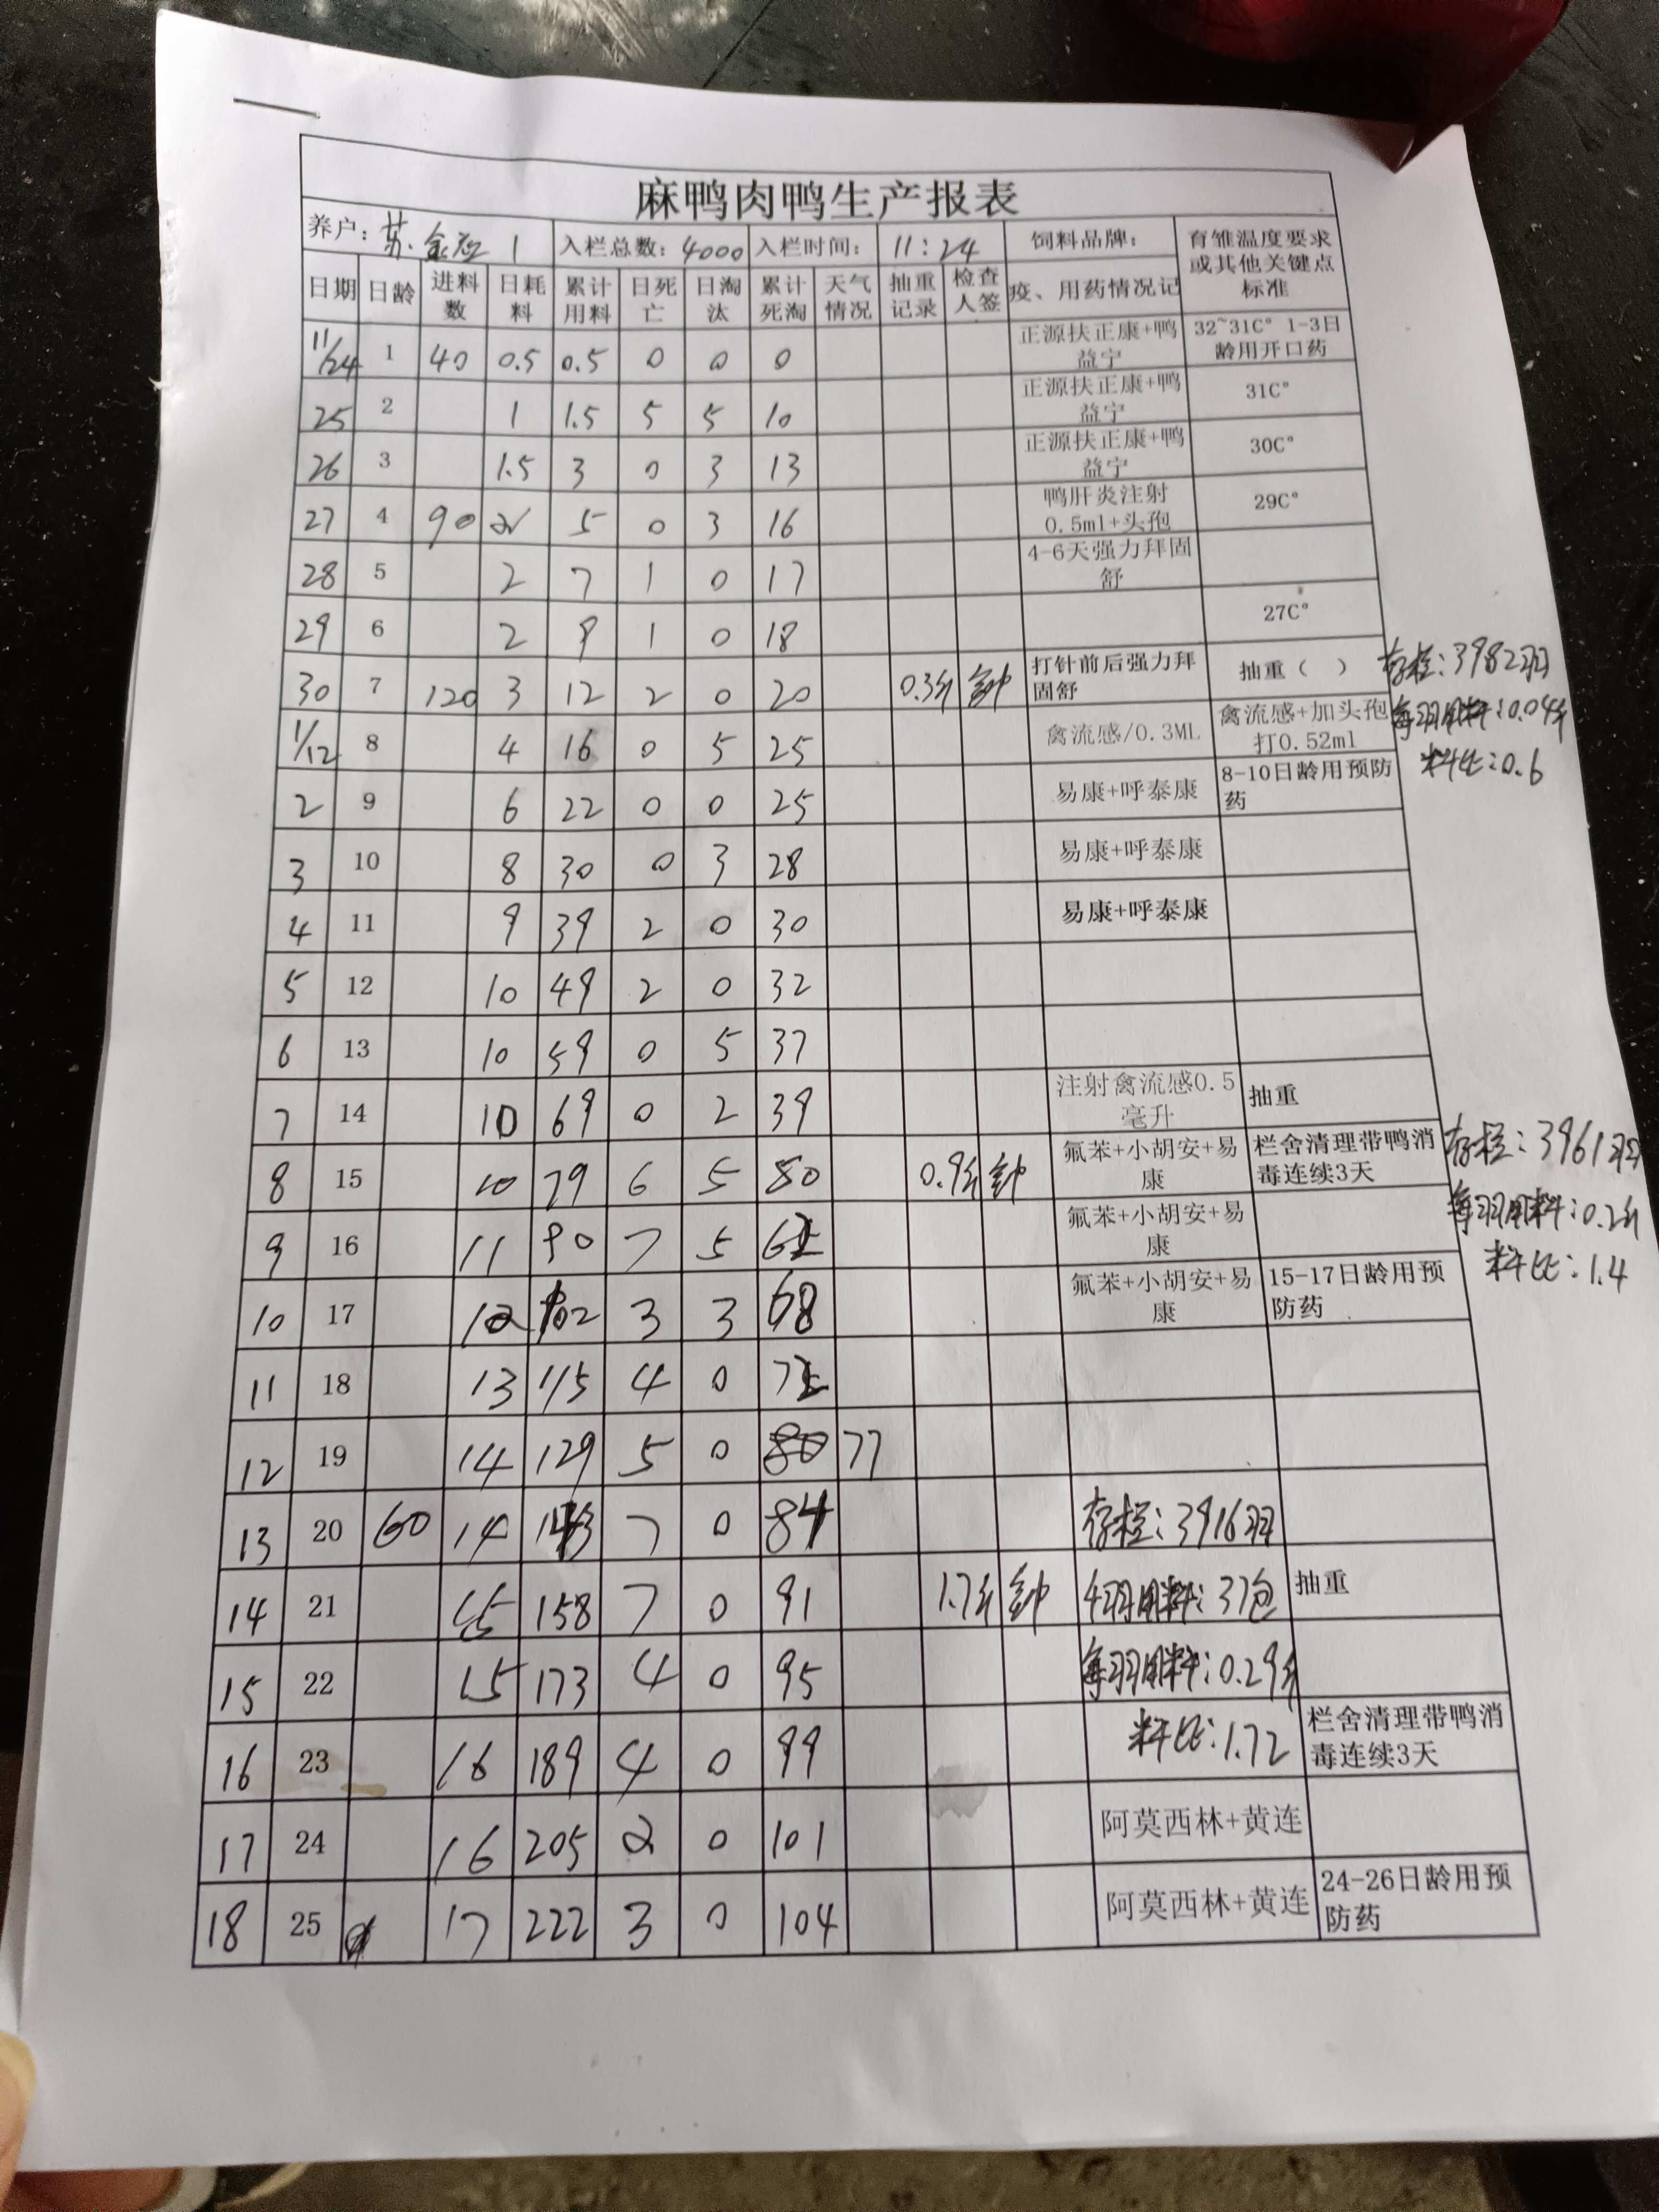 麻鸭肉鸭生产报表
养户：苏金 1 入栏总数：4000 入栏时间： 11:24 饲料品牌： 育雏温度要求或其他关键点标准
日期 日龄 进料数 日耗料 累计用料 日死亡 日淘汰 累计死淘 天气情况 抽重记录 检查人签 疫、用药情况记
11/24 1 40 0.5 0.5 0 0 0 正源扶正康+鸭益宁 32~31C° 1-3日龄用开口药
25 2 1 1.5 5 5 10 正源扶正康+鸭益宁 31C°
26 3 1.5 3 0 3 13 正源扶正康+鸭益宁 30C°
27 4 90 2 5 0 3 16 鸭肝炎注射0.5ml+头孢 29C°
28 5 2 7 1 0 17 4-6天强力拜固舒
29 6 2 9 1 0 18 27C°
30 7 120 3 12 2 0 20 0.3斤 打针前后强力拜固舒 抽重（ ） 存栏：3982羽
1/12 8 4 16 0 5 25 禽流感/0.3ML 禽流感+加头孢打0.52ml 每羽用料：0.04斤
料比：0.6
2 9 6 22 0 0 25 易康+呼泰康 8-10日龄用预防药
3 10 8 30 0 3 28 易康+呼泰康
4 11 9 39 2 0 30 易康+呼泰康
5 12 10 49 2 0 32
6 13 10 59 0 5 37
7 14 10 69 0 2 39 注射禽流感0.5毫升 抽重
8 15 10 79 6 5 50 0.9斤 氟苯+小胡安+易康 栏舍清理带鸭消毒连续3天 存栏：3961羽
9 16 11 90 7 5 62 氟苯+小胡安+易康 每羽用料：0.2斤
料比：1.4
10 17 12 102 3 3 68 氟苯+小胡安+易康 15-17日龄用预防药
11 18 13 115 4 0 72
12 19 14 129 5 0 80 77
13 20 60 14 143 7 0 84 存栏：3916羽
14 21 15 158 7 0 91 1.7斤 用料：37包 抽重
15 22 15 173 4 0 95 每羽用料：0.29斤
16 23 16 189 4 0 99 料比：1.72 栏舍清理带鸭消毒连续3天
17 24 16 205 2 0 101 阿莫西林+黄连
18 25 17 222 3 0 104 阿莫西林+黄连 24-26日龄用预防药